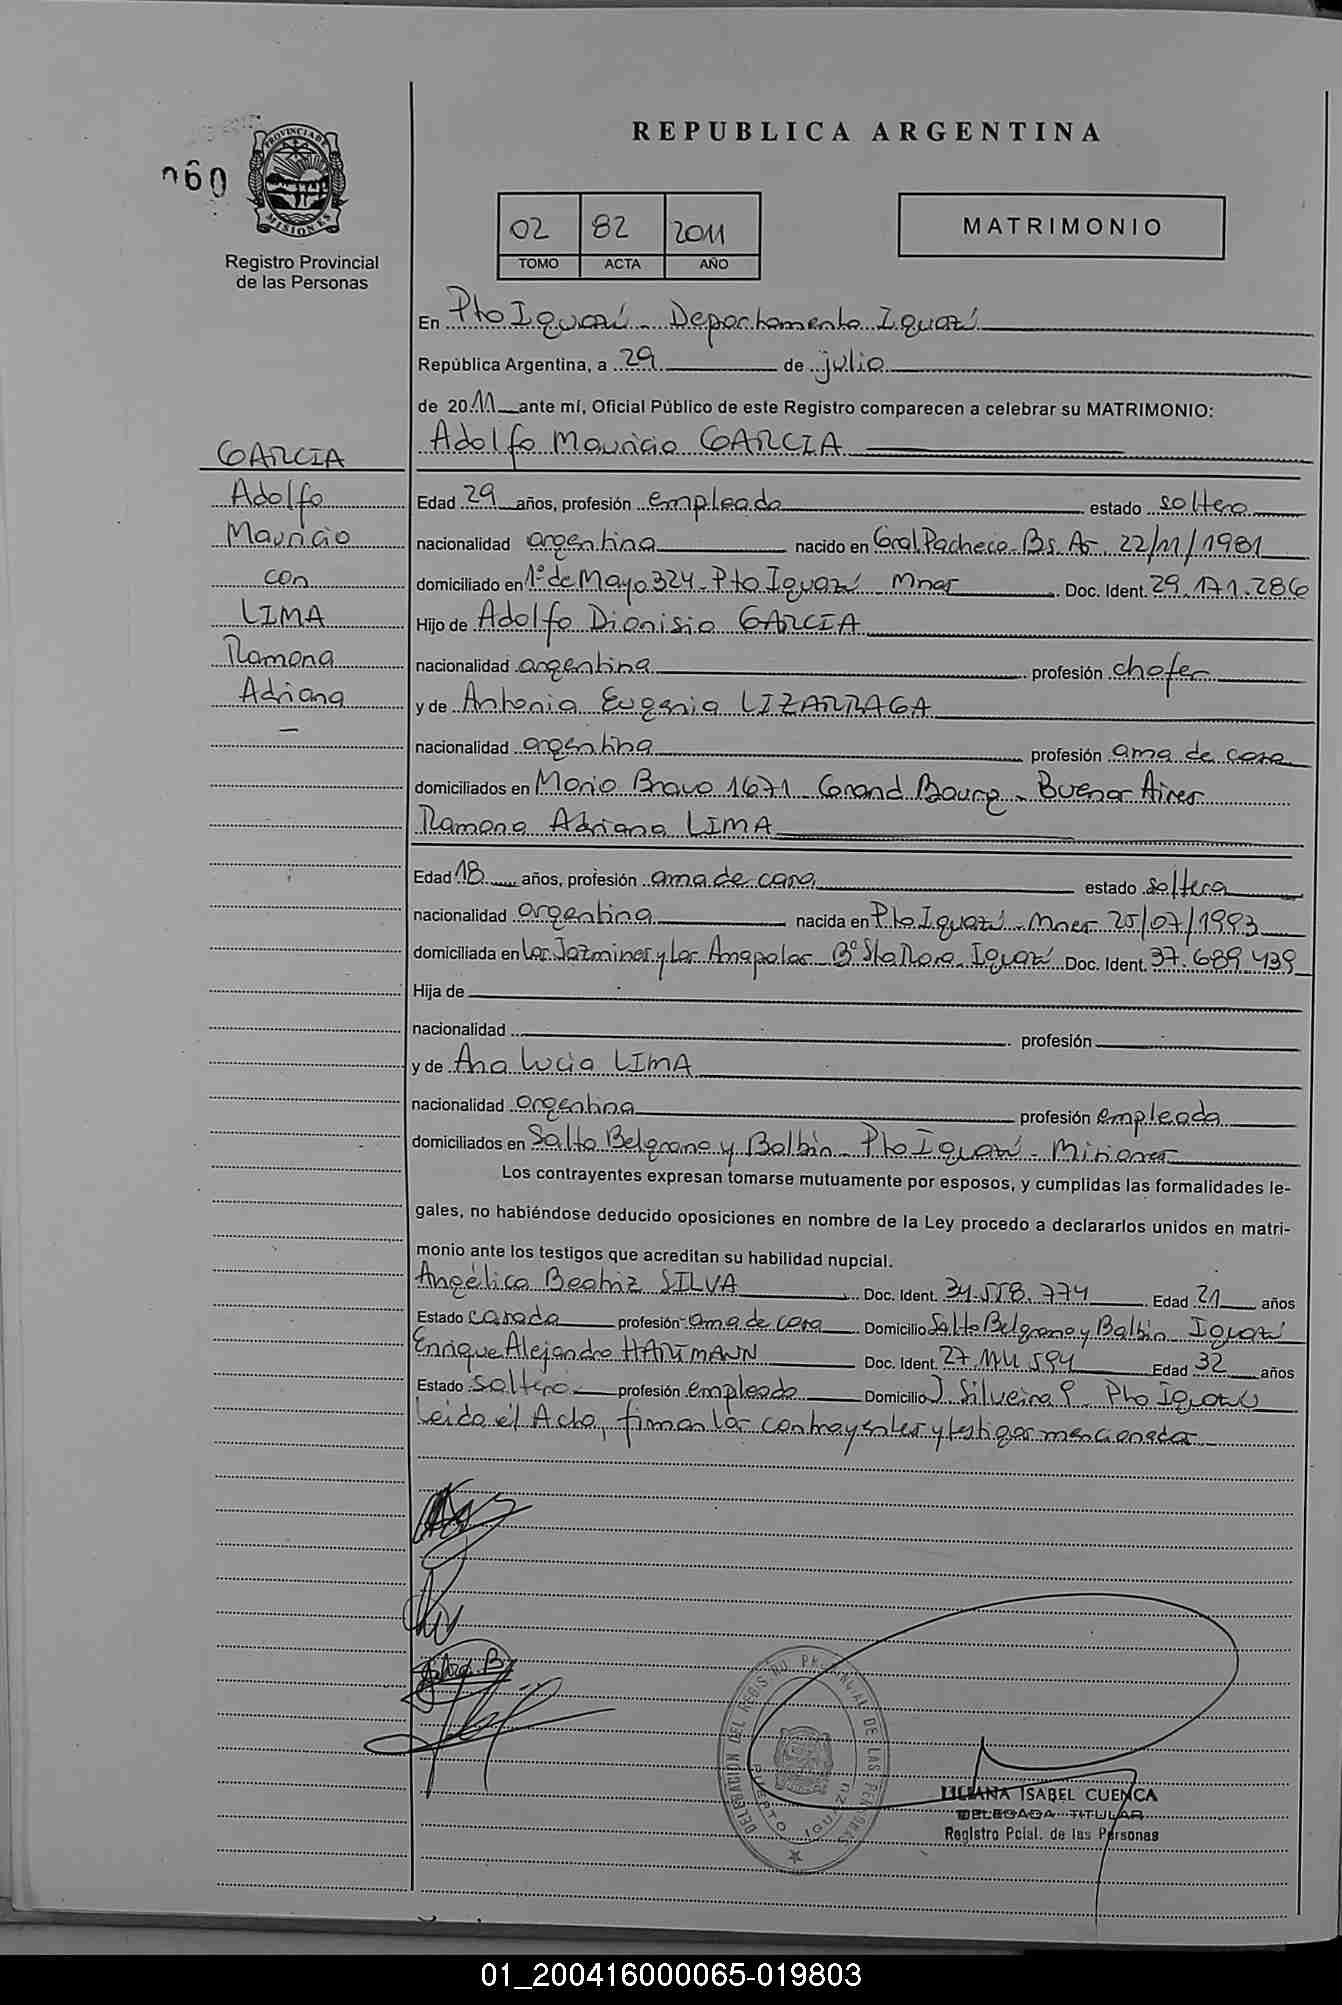 REPUBLICA ARGENTINA
060
PROVINCIA DE
MISIONES
Registro Provincial
de las Personas
02 82 2011
TOMO ACTA AÑO
MATRIMONIO
En Pto Iguazú - Departamento Iguazú
República Argentina, a 29 de julio
de 2011 ante mí, Oficial Público de este Registro comparecen a celebrar su MATRIMONIO:
Adolfo Mauricio GARCIA
GARCIA
Adolfo
Mauricio
con
LIMA
Ramona
Adriana
Edad 29 años, profesión empleado estado soltero
nacionalidad argentina nacido en Gral Pacheco - Bs. As. 22/11/1981
domiciliado en 1º de Mayo 324 - Pto Iguazú Mnes Doc. Ident. 29.171.286
Hijo de Adolfo Dionisio GARCIA
nacionalidad argentina profesión chofer
y de Antonia Eugenia LIZARRAGA
nacionalidad argentina profesión ama de casa
domiciliados en Mario Bravo 1671 Grand Bourg - Buenos Aires
Ramona Adriana LIMA
Edad 18 años, profesión ama de casa estado soltera
nacionalidad argentina nacida en Pto Iguazú - Mnes 25/07/1993
domiciliada en Los Jazmines y Las Amapolas Bº Sta Rosa - Iguazú Doc. Ident. 37.689.439
Hija de
nacionalidad profesión
y de Ana Lucia LIMA
nacionalidad argentina profesión empleada
domiciliados en Salto Belgrano y Balbín - Pto Iguazú - Misiones
Los contrayentes expresan tomarse mutuamente por esposos, y cumplidas las formalidades le-
gales, no habiéndose deducido oposiciones en nombre de la Ley procedo a declararlos unidos en matri-
monio ante los testigos que acreditan su habilidad nupcial.
Angélica Beatriz SILVA Doc. Ident. 34.558.774 Edad 21 años
Estado casada profesión ama de casa Domicilio Salto Belgrano y Balbín Iguazú
Enrique Alejandro HARTMANN Doc. Ident. 27.144.594 Edad 32 años
Estado soltero profesión empleado Domicilio J. Silveira 9 Pto Iguazú
Leída el Acta, firman los contrayentes y testigos mencionados
DELEGACIÓN DEL REGISTRO PROVINCIAL DE LAS PERSONAS
PUERTO IGUAZU
LILIANA ISABEL CUENCA
DELEGADA TITULAR
Registro Pcial. de las Personas
01_200416000065-019803